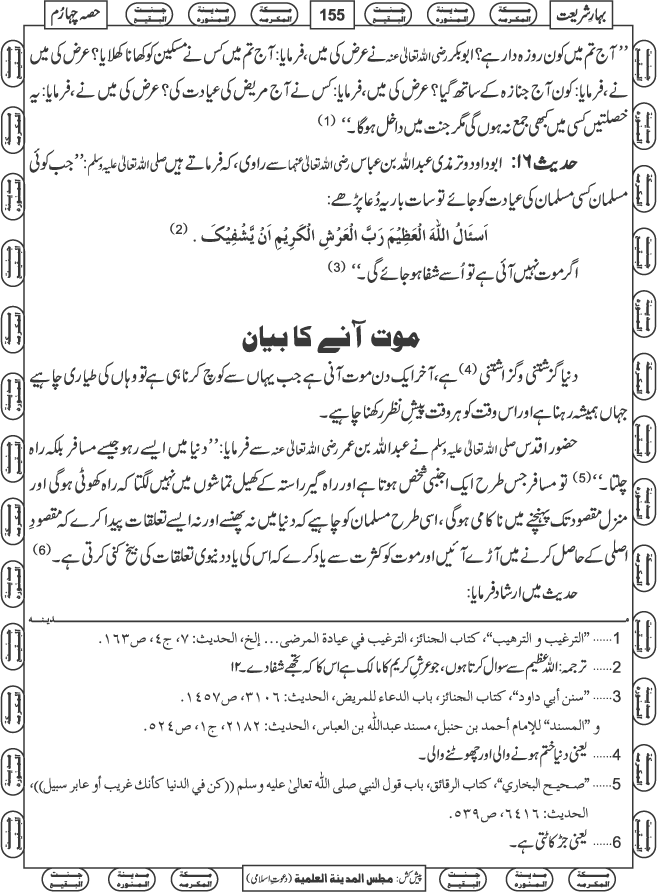 بہارِ شریعت مکۃ المکرمہ مدینۃ المنورہ جنت البقیع 155 مکۃ المکرمہ مدینۃ المنورہ جنت البقیع حصہ چہارم
’’آج تم میں کون روزہ دار ہے؟ ابوبکر رضی اللہ تعالیٰ عنہ نے عرض کی میں، فرمایا: آج تم میں کس نے مسکین کو کھانا کھلایا؟ عرض کی میں
نے، فرمایا: کون آج جنازہ کے ساتھ گیا؟ عرض کی میں، فرمایا: کس نے آج مریض کی عیادت کی؟ عرض کی میں نے، فرمایا: یہ
خصلتیں کسی میں کبھی جمع نہ ہوں گی مگر جنت میں داخل ہوگا۔‘‘ (1)
حدیث ۱۶: ابو داود و ترمذی عبداللہ بن عباس رضی اللہ تعالیٰ عنہما سے راوی، کہ فرماتے ہیں صلی اللہ تعالیٰ علیہ وسلم: ’’جب کوئی
مسلمان کسی مسلمان کی عیادت کو جائے تو سات بار یہ دُعا پڑھے:
اَسْئَالُ اللّٰہَ الْعَظِیْمَ رَبَّ الْعَرْشِ الْکَرِیْمِ اَنْ یَّشْفِیْکَ . (2)
اگر موت نہیں آئی ہے تو اُسے شفا ہو جائے گی۔‘‘ (3)
موت آنے کا بیان
دنیا گزشتنی و گزاشتنی (4) ہے، آخر ایک دن موت آنی ہے جب یہاں سے کوچ کرنا ہی ہے تو وہاں کی طیاری چاہیے
جہاں ہمیشہ رہنا ہے اور اس وقت کو ہر وقت پیشِ نظر رکھنا چاہیے۔
حضور اقدس صلی اللہ تعالیٰ علیہ وسلم نے عبداللہ بن عمر رضی اللہ تعالیٰ عنہ سے فرمایا: ’’دنیا میں ایسے رہو جیسے مسافر بلکہ راہ
چلتا۔‘‘ (5) تو مسافر جس طرح ایک اجنبی شخص ہوتا ہے اور راہ گیر راستہ کے کھیل تماشوں میں نہیں لگتا کہ راہ کھوٹی ہوگی اور
منزل مقصود تک پہنچنے میں ناکامی ہوگی، اسی طرح مسلمان کو چاہیے کہ دنیا میں نہ پھنسے اور نہ ایسے تعلقات پیدا کرے کہ مقصودِ
اصلی کے حاصل کرنے میں آڑے آئیں اور موت کو کثرت سے یاد کرے کہ اس کی یاد دنیوی تعلقات کی بیخ کنی کرتی ہے۔ (6)
حدیث میں ارشاد فرمایا:
مدینہ
1 ...... ’’الترغیب و الترهیب‘‘، کتاب الجنائز، الترغیب في عیادة المرضی... إلخ، الحدیث: ۷، ج٤، ص١٦٣.
2 ...... ترجمہ: اللہ عظیم سے سوال کرتا ہوں، جو عرشِ کریم کا مالک ہے اس کا کہ تجھے شفا دے۔ ۱۲
3 ...... ’’سنن أبي داود‘‘، کتاب الجنائز، باب الدعاء للمریض، الحدیث: ٣١٠٦، ص١٤٥٧.
و ’’المسند‘‘ للإمام أحمد بن حنبل، مسند عبداللّٰه بن العباس، الحدیث: ٢١٨٢، ج١، ص٥٢٤.
4 ...... یعنی دنیا ختم ہونے والی اور چھوٹنے والی۔
5 ...... ’’صحیح البخاري‘‘، کتاب الرقائق، باب قول النبي صلی اللّٰه تعالیٰ علیه وسلم ((کن في الدنیا کأنك غریب أو عابر سبیل))،
الحدیث: ٦٤١٦، ص٥٣٩.
6 ...... یعنی جڑ کاٹتی ہے۔
مکۃ المکرمہ مدینۃ المنورہ جنت البقیع پیش کش: مجلس المدینۃ العلمیۃ (دعوتِ اسلامی) مکۃ المکرمہ مدینۃ المنورہ جنت البقیع